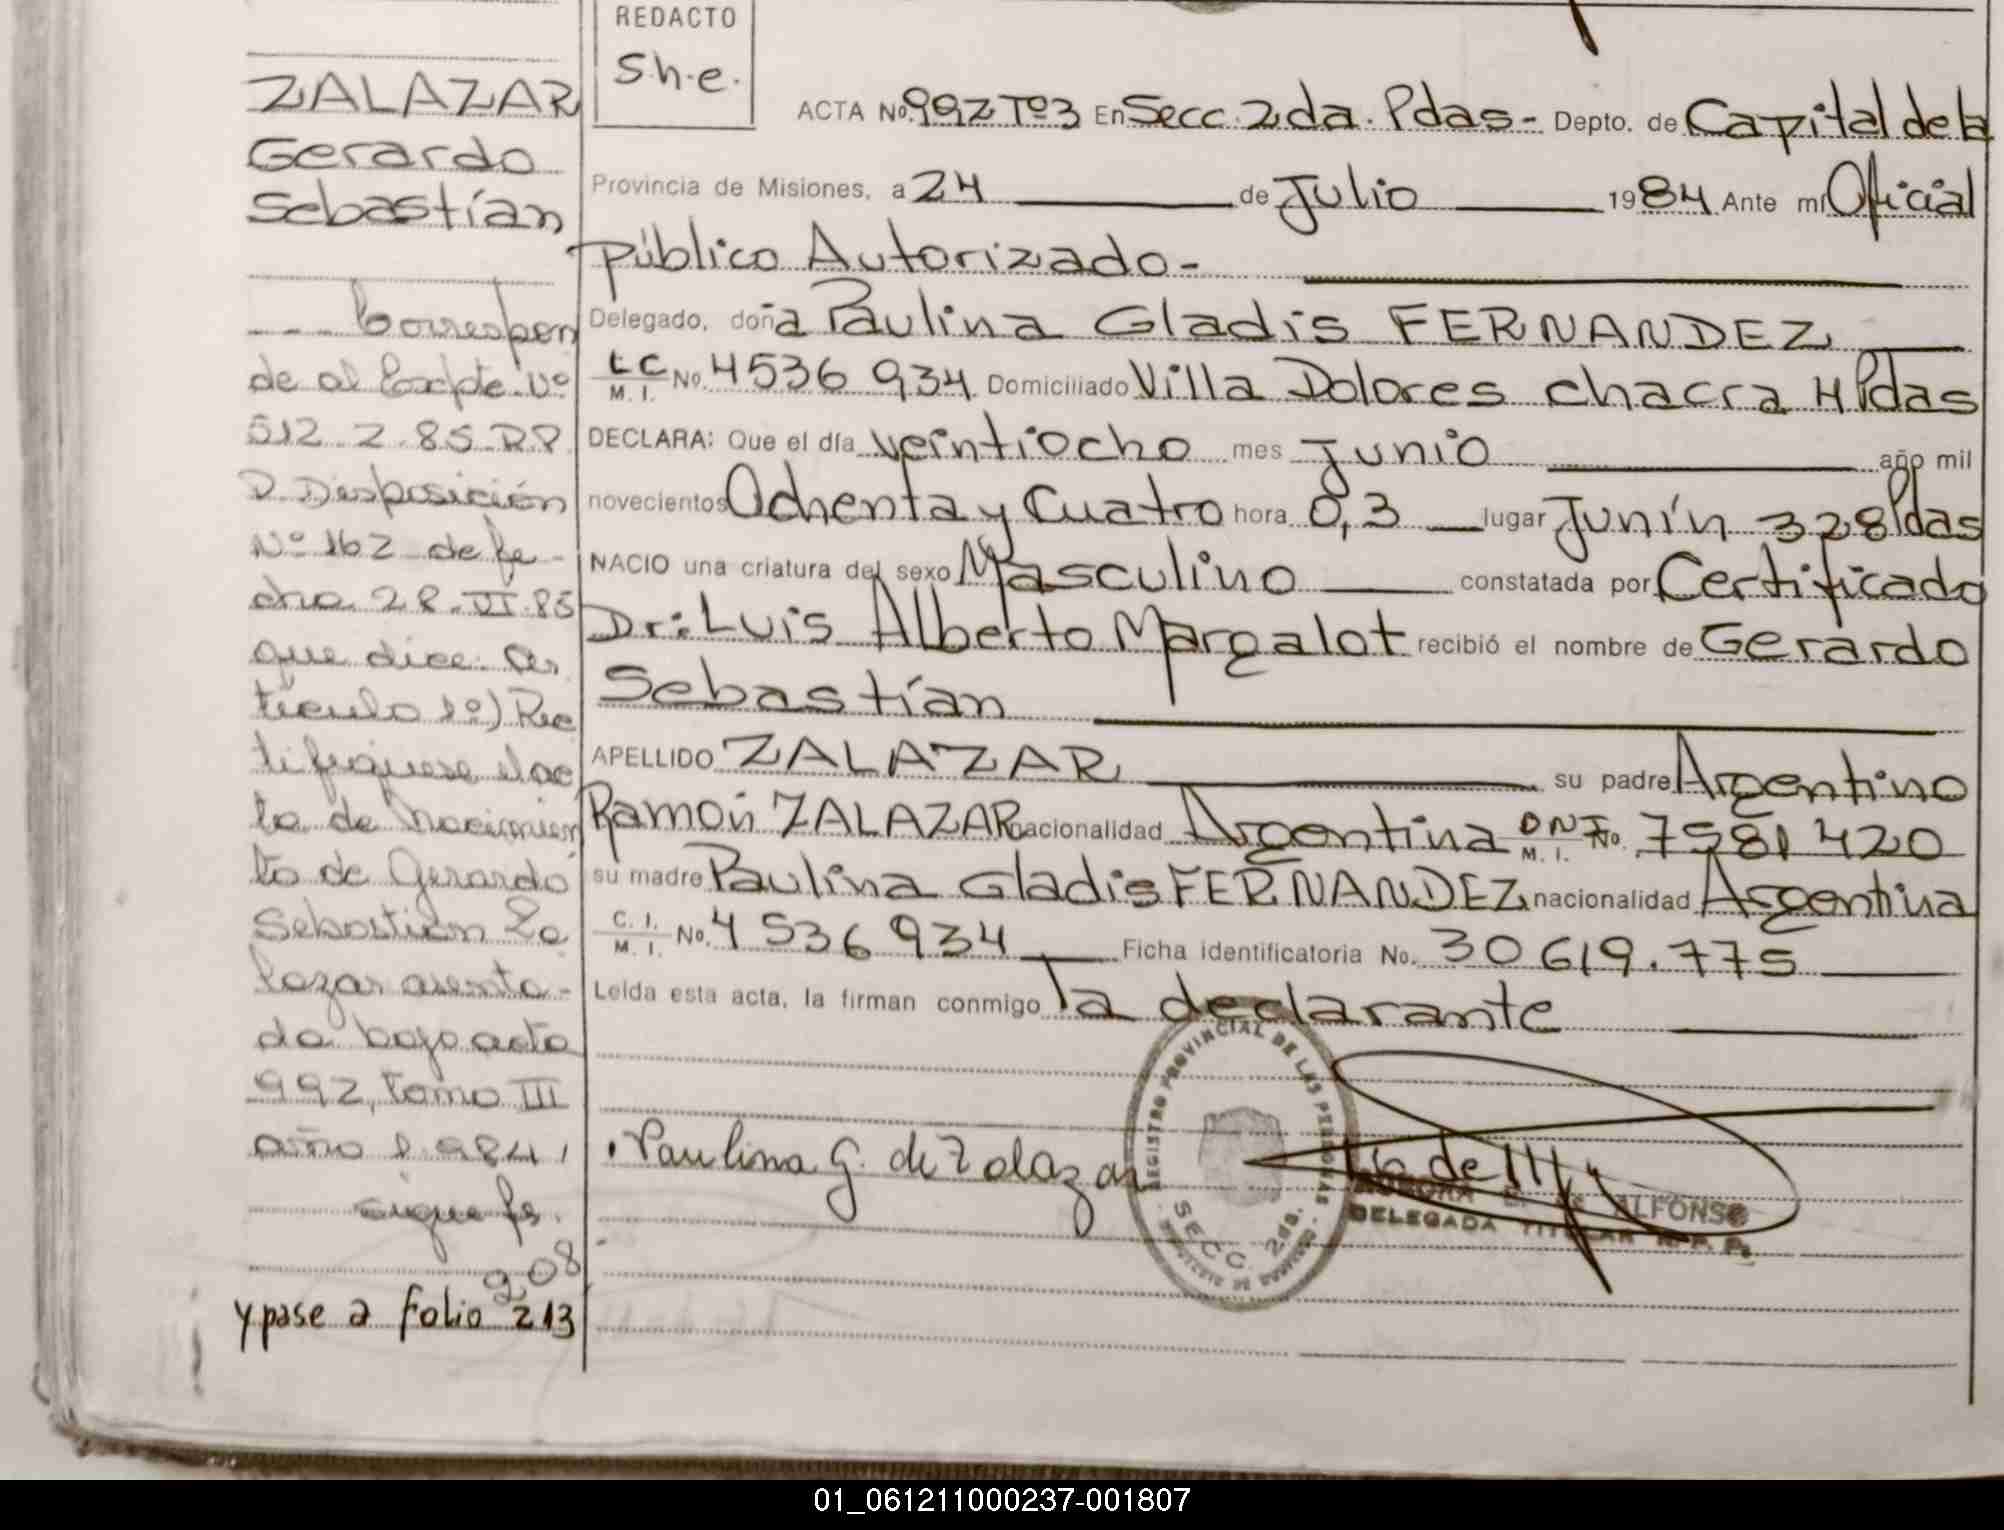 REDACTO
S.h.e.
ZALAZAR
Gerardo
Sebastían
ACTA No. 992 Tº3 En Secc. 2da. Pdas- Depto. de Capital de la
Provincia de Misiones, a 24 de Julio 1984 Ante mí Oficial
Público Autorizado-
Delegado, doña Paulina Gladis FERNANDEZ
LC M. I. No. 4536 934 Domiciliado Villa Dolores chacra 4 Pdas
DECLARA: Que el día veintiocho mes Junio año mil
novecientos Ochenta y Cuatro hora 0,3 lugar Junín 328 Pdas
NACIO una criatura del sexo Masculino constatada por Certificado
Dr: Luis Alberto Margalot recibió el nombre de Gerardo
Sebastían
APELLIDO ZALAZAR su padre Argentino
Ramón ZALAZAR nacionalidad Argentina DNI M. I. No. 7581420
su madre Paulina Gladis FERNANDEZ nacionalidad Argentina
C. I. M. I. No. 4536934 Ficha identificatoria No. 30619.775
Leída esta acta, la firman conmigo la declarante
Paulina G. de Zalazar
REGISTRO PROVINCIAL DE LAS PERSONAS
SECC. 2da.
ALFONSO
DELEGADA TITULAR R. P. P.
--- Correspon
de al Expte. Nº
512-Z-85-R.P.
P. Disposición
Nº 162 de fe-
cha 28-VI-85
que dice: Ar
tículo 1º) Rec
tifíquese el ac
ta de nacimien
to de Gerardo
Sebastián Za
lazar asenta-
da bajo acta
992, Tomo III
año 1.984,
sigue fs.
208
y pase a folio 213
01_061211000237-001807